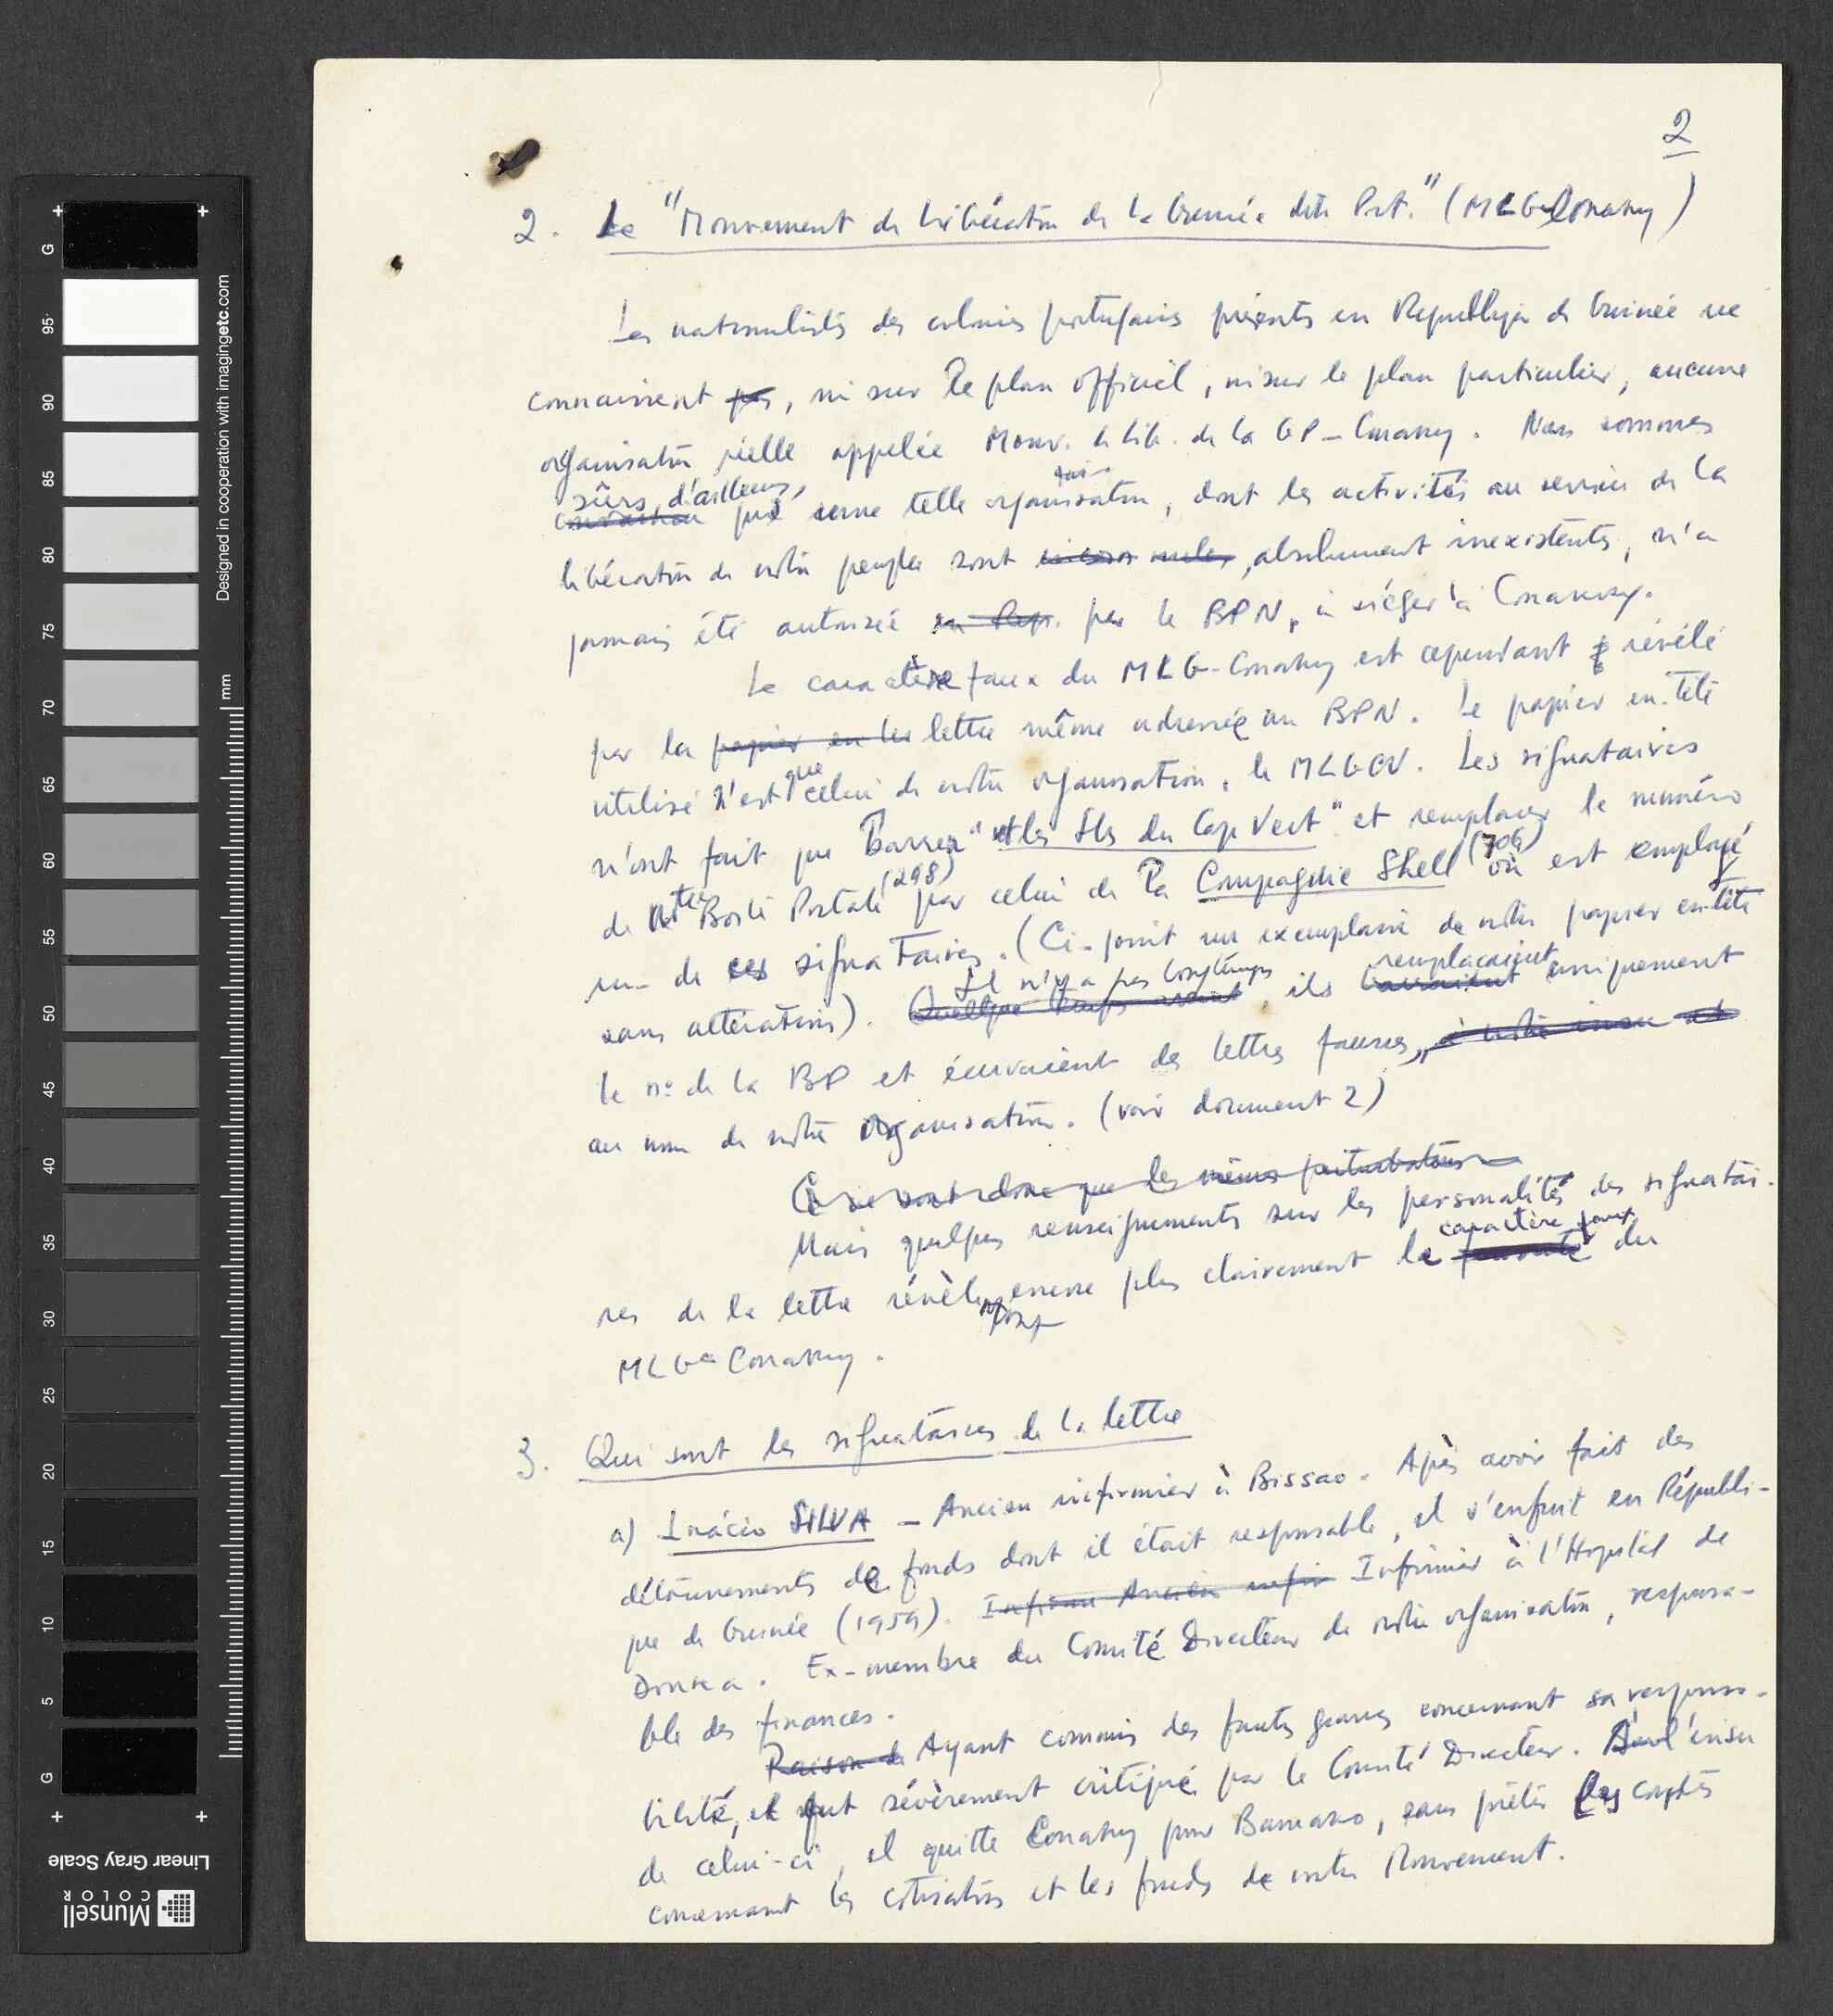 2
2. Le "Mouvement de Libération de la Guinée dite Port." (MLG-Conakry)
Les nationalistes des colonies portugaises présents en République de Guinée ne
connaissent pas, ni sur le plan officiel, ni sur le plan particulier, aucune
organisation réelle appelée Mouv. de Lib. de la GP - Conakry. Nous sommes
sûrs, d'ailleurs,
que une telle organisation, dont les activités au service de la
libération de notre peuple sont absolument inexistentes, n'a
jamais été autorisée en Rep. par le BPN, à siéger à Conakry.
Le caractère faux du MLG-Conakry est cependant révélé
par la papier en tes lettre même adressée au BPN. Le papier en-tête
utilisé n'est que celui de notre organisation, le MLGCV. Les signataires
n'ont fait que barrer "et les Iles du Cap Vert" et remplacer le numéro
de Ntre Boite Postale (298) par celui de la Compagnie Shell (706) où est employé
un de ces signataires. (Ci-joint un exemplaire de notre papier en-tête
sans altérations). Quelque temps avant Il n'y a pas longtemps, ils remplacaient uniquement
le nº de la BP et écrivaient des lettres fausses, à notre insu et
au nom de notre organisation. (voir document 2)
Ce ne sont donc que les mêmes perturbateurs
Mais quelques renseignements sur les personalités des signatai-
res de la lettre révèleront encore plus clairement le caractère faux du
MLG-Conakry.
3. Qui sont les signataires de la lettre
a) Inácio SILVA - Ancien infirmier à Bissao. Après avoir fait des
détournements de fonds dont il était responsable, il s'enfuit en Républi-
que de Guinée (1959). Infirm Ancien infir Infirmier à l'Hopital de
Donka. Ex-membre du Comité Directeur de notre organisation, responsa-
ble des finances.
Raison de Ayant commis des fautes graves concernant sa responsa-
bilité, il fut sévèrement critiqué par le Comité Directeur. A l'insu
de celui-ci, il quitte Conakry pour Bamako, sans prêter les comptes
concernant les cotisations et les fonds de notre Mouvement.
G
95
90
85
80
75
70
65
60
55
50
45
40
35
30
25
20
15
10
5
G
mm
Designed in cooperation with imagingetc.com
Linear Gray Scale
Munsell
COLOR